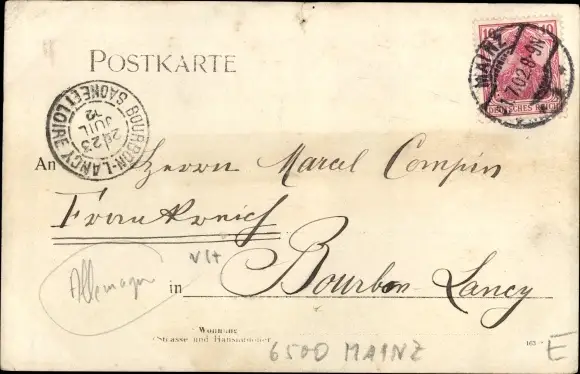 POSTKARTE
10 10
DEUTSCHES REICH
MAINZ
7.02.8-9N
BOURBON-LANCY SAONE ET LOIRE
JUIL
An Herrn Marcel Compin
Frankreich
Allemagne
in Bourbon-Lancy
Wohnung
(Strasse und Hausnummer)
6500 MAINZ
E